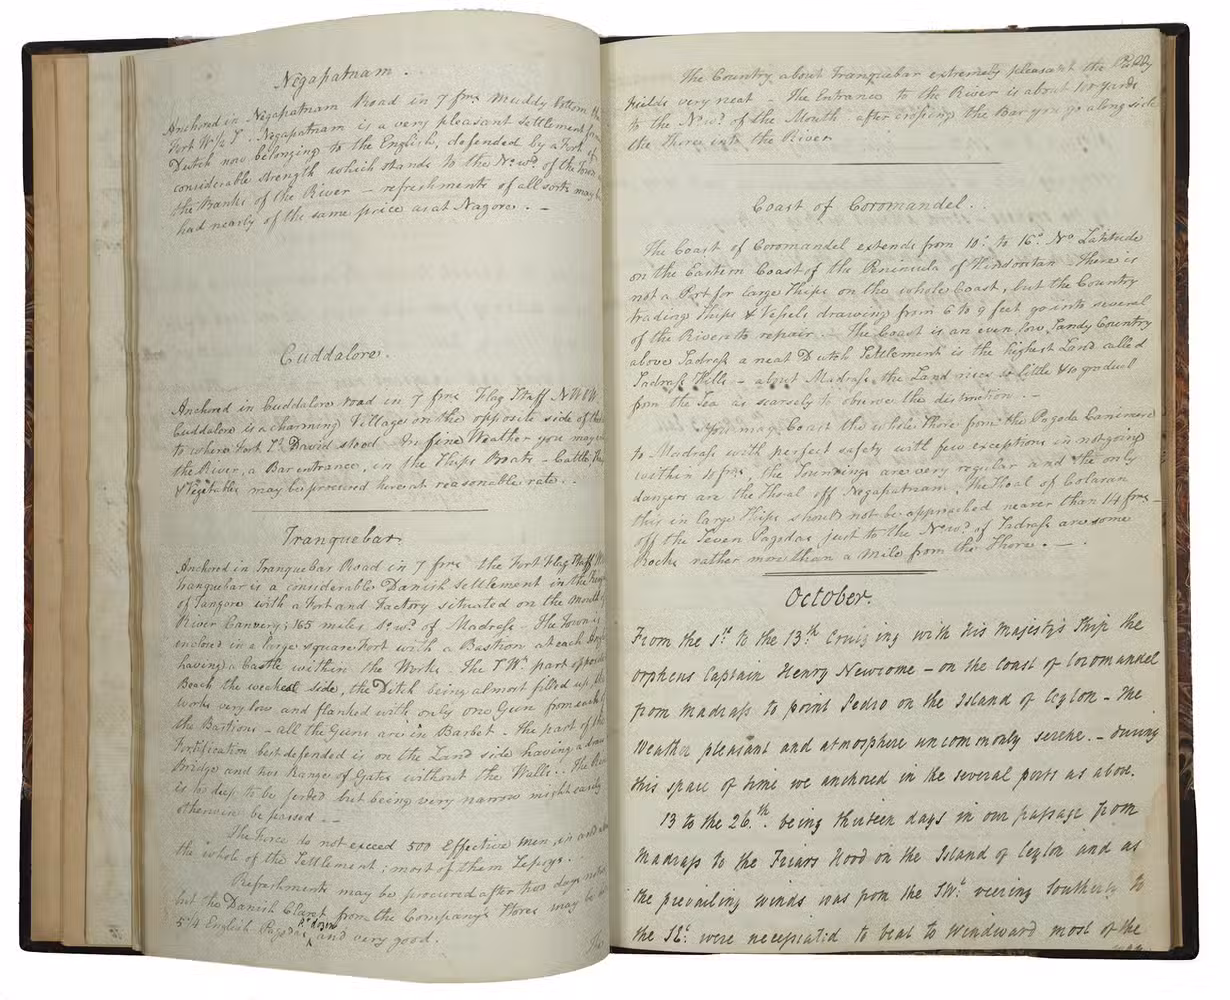 Negapatnam.
Anchored in Negapatnam Road in 7 fms muddy bottom
Fort W½ S. Negapatnam is a very pleasant settlement
Dutch now belonging to the English, defended by a Fort of
considerable strength which stands to the No. wd. of the Town
the Banks of the River – refreshments of all sorts may be
had nearly of the same price as at Nagore. –
Cuddalore.
Anchored in Cuddalore road in 7 fms Flag Staff N W b W
Cuddalore is a charming Village on the opposite side of the
to where Fort St. David stood – In fine Weather you may
the River, a Bar entrance, in the Ships Boats – Cattle
& Vegetables may be procured here at reasonable rate. .
Tranquebar.
Anchored in Tranquebar Road in 7 fms the Fort Flag Staff
Tranquebar is a considerable Danish Settlement in the
of Tanjore with a Fort and Factory situated on the mouth of
River Canvery; 165 miles So. wd. of Madrass – The Town is
enclosed in a large square Fort with a Bastion at each
having a Castle within the Works – The part opposite
Beach the weakest side, the Ditch being almost filled up, the
works very low and flanked with only one Gun from each
the Bastions – all the Guns are in Barbet – the part of the
Fortification best defended is on the Land side having a draw
Bridge and two Ranges of Gates without the Walls. . The River
is to deep to be forded but being very narrow might easily
otherwise be passed. –
The Force do not exceed 500 Effective men, in and about
the whole of the Settlement; most of them Sepoys. .
Refreshments may be procured after two days notice
but the Danish Claret from the Company's Stores may be had
5¼ English Pagodas pr. dozn. and very good.
The
The Country about Tranquebar extremely pleasant the Paddy
fields very neat – The Entrance to the River is about 100 yards
to the No. wd. of the Mouth after crossing the Bar you go along side
the Shore into the River
Coast of Coromandel. .
The Coast of Coromandel extends from 10° to 16° No. Latitude
on the Eastern Coast of the Peninsula of Hindostan – There is
not a Port for large Ships on the whole Coast, but the Country
trading Ships & Vessels drawing from 6 to 9 feet go into several
of the Rivers to repair. – The Coast is an even, low, Sandy Country
above Sadrass a neat Dutch Settlement is the highest Land called
Sadrass Hills – about Madrass the Land rises so little & so gradual
from the Sea as scarsely to observe the distinction. –
You may Coast the whole Shore from the Pagoda Canimere
to Madrass with perfect safety with few exceptions in not going
within 10 fms, the Soundings are very regular and the only
dangers are the Shoal off Negapatnam, The Shoal of Colaran
this in large Ships should not be approached nearer than 14 fms –
off the Seven Pagodas just to the No. wd. of Sadrass are some
Rocks rather more than a Mile from the Shore. –
October.
From the 1st to the 13th Cruizing with His Majesty's Ship the
Orpheus Captain Henry Newcome – on the Coast of Coromandel
from Madrass to point Pedro on the Island of Ceylon – The
Weather pleasant and atmosphere uncommonly serene. – During
this space of time we anchored in the several ports as above.
13 to the 26th. being thirteen days in our passage from
Madrass to the Friars Hood on the Island of Ceylon and as
the prevailing winds was from the SWd. veering Southerly to
the SEd. were necessiated to beat to Windward most of the